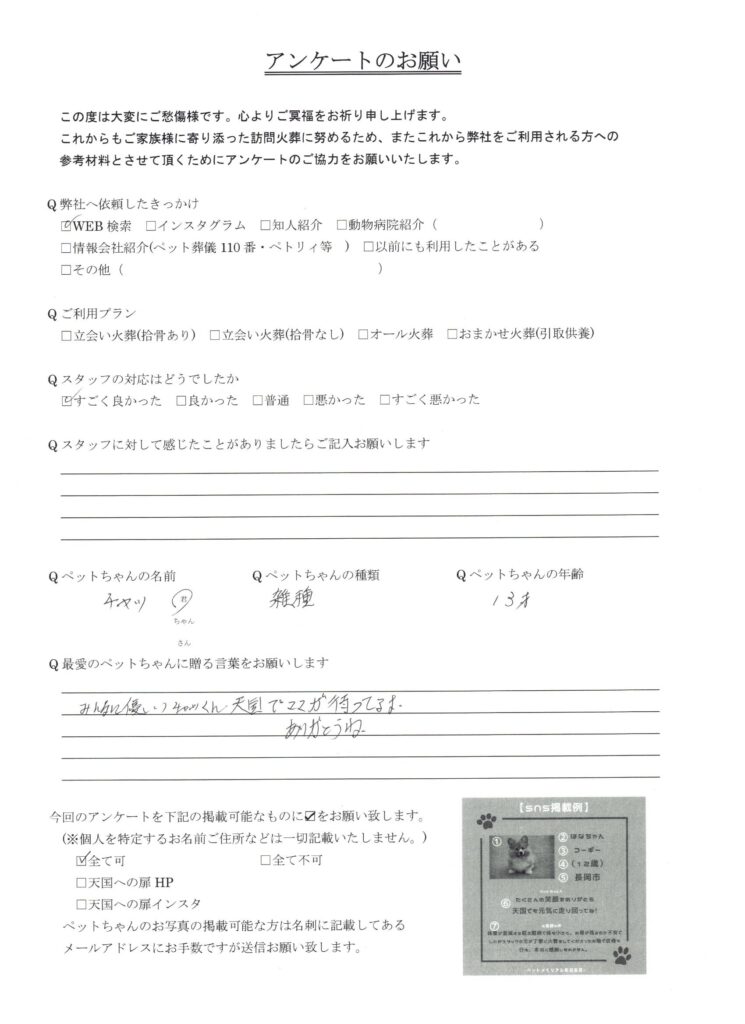 アンケートのお願い
この度は大変にご愁傷様です。心よりご冥福をお祈り申し上げます。
これからもご家族様に寄り添った訪問火葬に努めるため、またこれから弊社をご利用される方への
参考材料とさせて頂くためにアンケートのご協力をお願いいたします。
Q 弊社へ依頼したきっかけ
☑WEB 検索 □インスタグラム □知人紹介 □動物病院紹介（ ）
□情報会社紹介(ペット葬儀 110 番・ペトリィ等 ) □以前にも利用したことがある
□その他（ ）
Q ご利用プラン
□立会い火葬(拾骨あり) □立会い火葬(拾骨なし) □オール火葬 □おまかせ火葬(引取供養)
Q スタッフの対応はどうでしたか
☑すごく良かった □良かった □普通 □悪かった □すごく悪かった
Q スタッフに対して感じたことがありましたらご記入お願いします
Q ペットちゃんの名前 Q ペットちゃんの種類 Q ペットちゃんの年齢
チャツ 君 雑種 13才
ちゃん
さん
Q 最愛のペットちゃんに贈る言葉をお願いします
みんなに優しいチャツくん 天国でココが待ってるよ
ありがとうね
今回のアンケートを下記の掲載可能なものに☑をお願い致します。
(※個人を特定するお名前ご住所などは一切記載いたしません。)
☑全て可 □全て不可
□天国への扉 HP
□天国への扉インスタ
ペットちゃんのお写真の掲載可能な方は名刺に記載してある
メールアドレスにお手数ですが送信お願い致します。
【sns掲載例】
① ② はなちゃん
③ コーギー
④ （12歳）
⑤ 長岡市
⑥ たくさんの笑顔をありがとう
天国でも元気に走り回ってね!
⑦